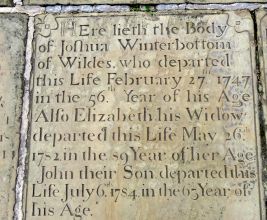 HEre lieth the Body
of Joshua Winterbottom
of Wildes, who departed
this Life February 27 1747
in the 56th Year of his Age
Also Elizabeth his Widow
departed this Life May 26th
1782 in the 89 Year of her Age
John their Son departed this
Life July 6th 1784 in the 65 Year of
his Age.